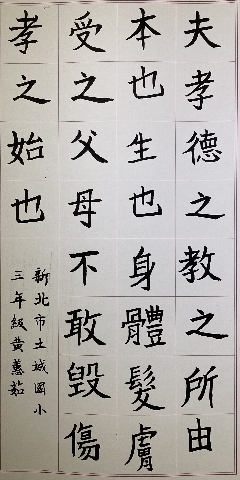 夫孝德之教之所由
本也生也身體髮膚
受之父母不敢毀傷
孝之始也
新北市土城國小
三年級黃蕙茹